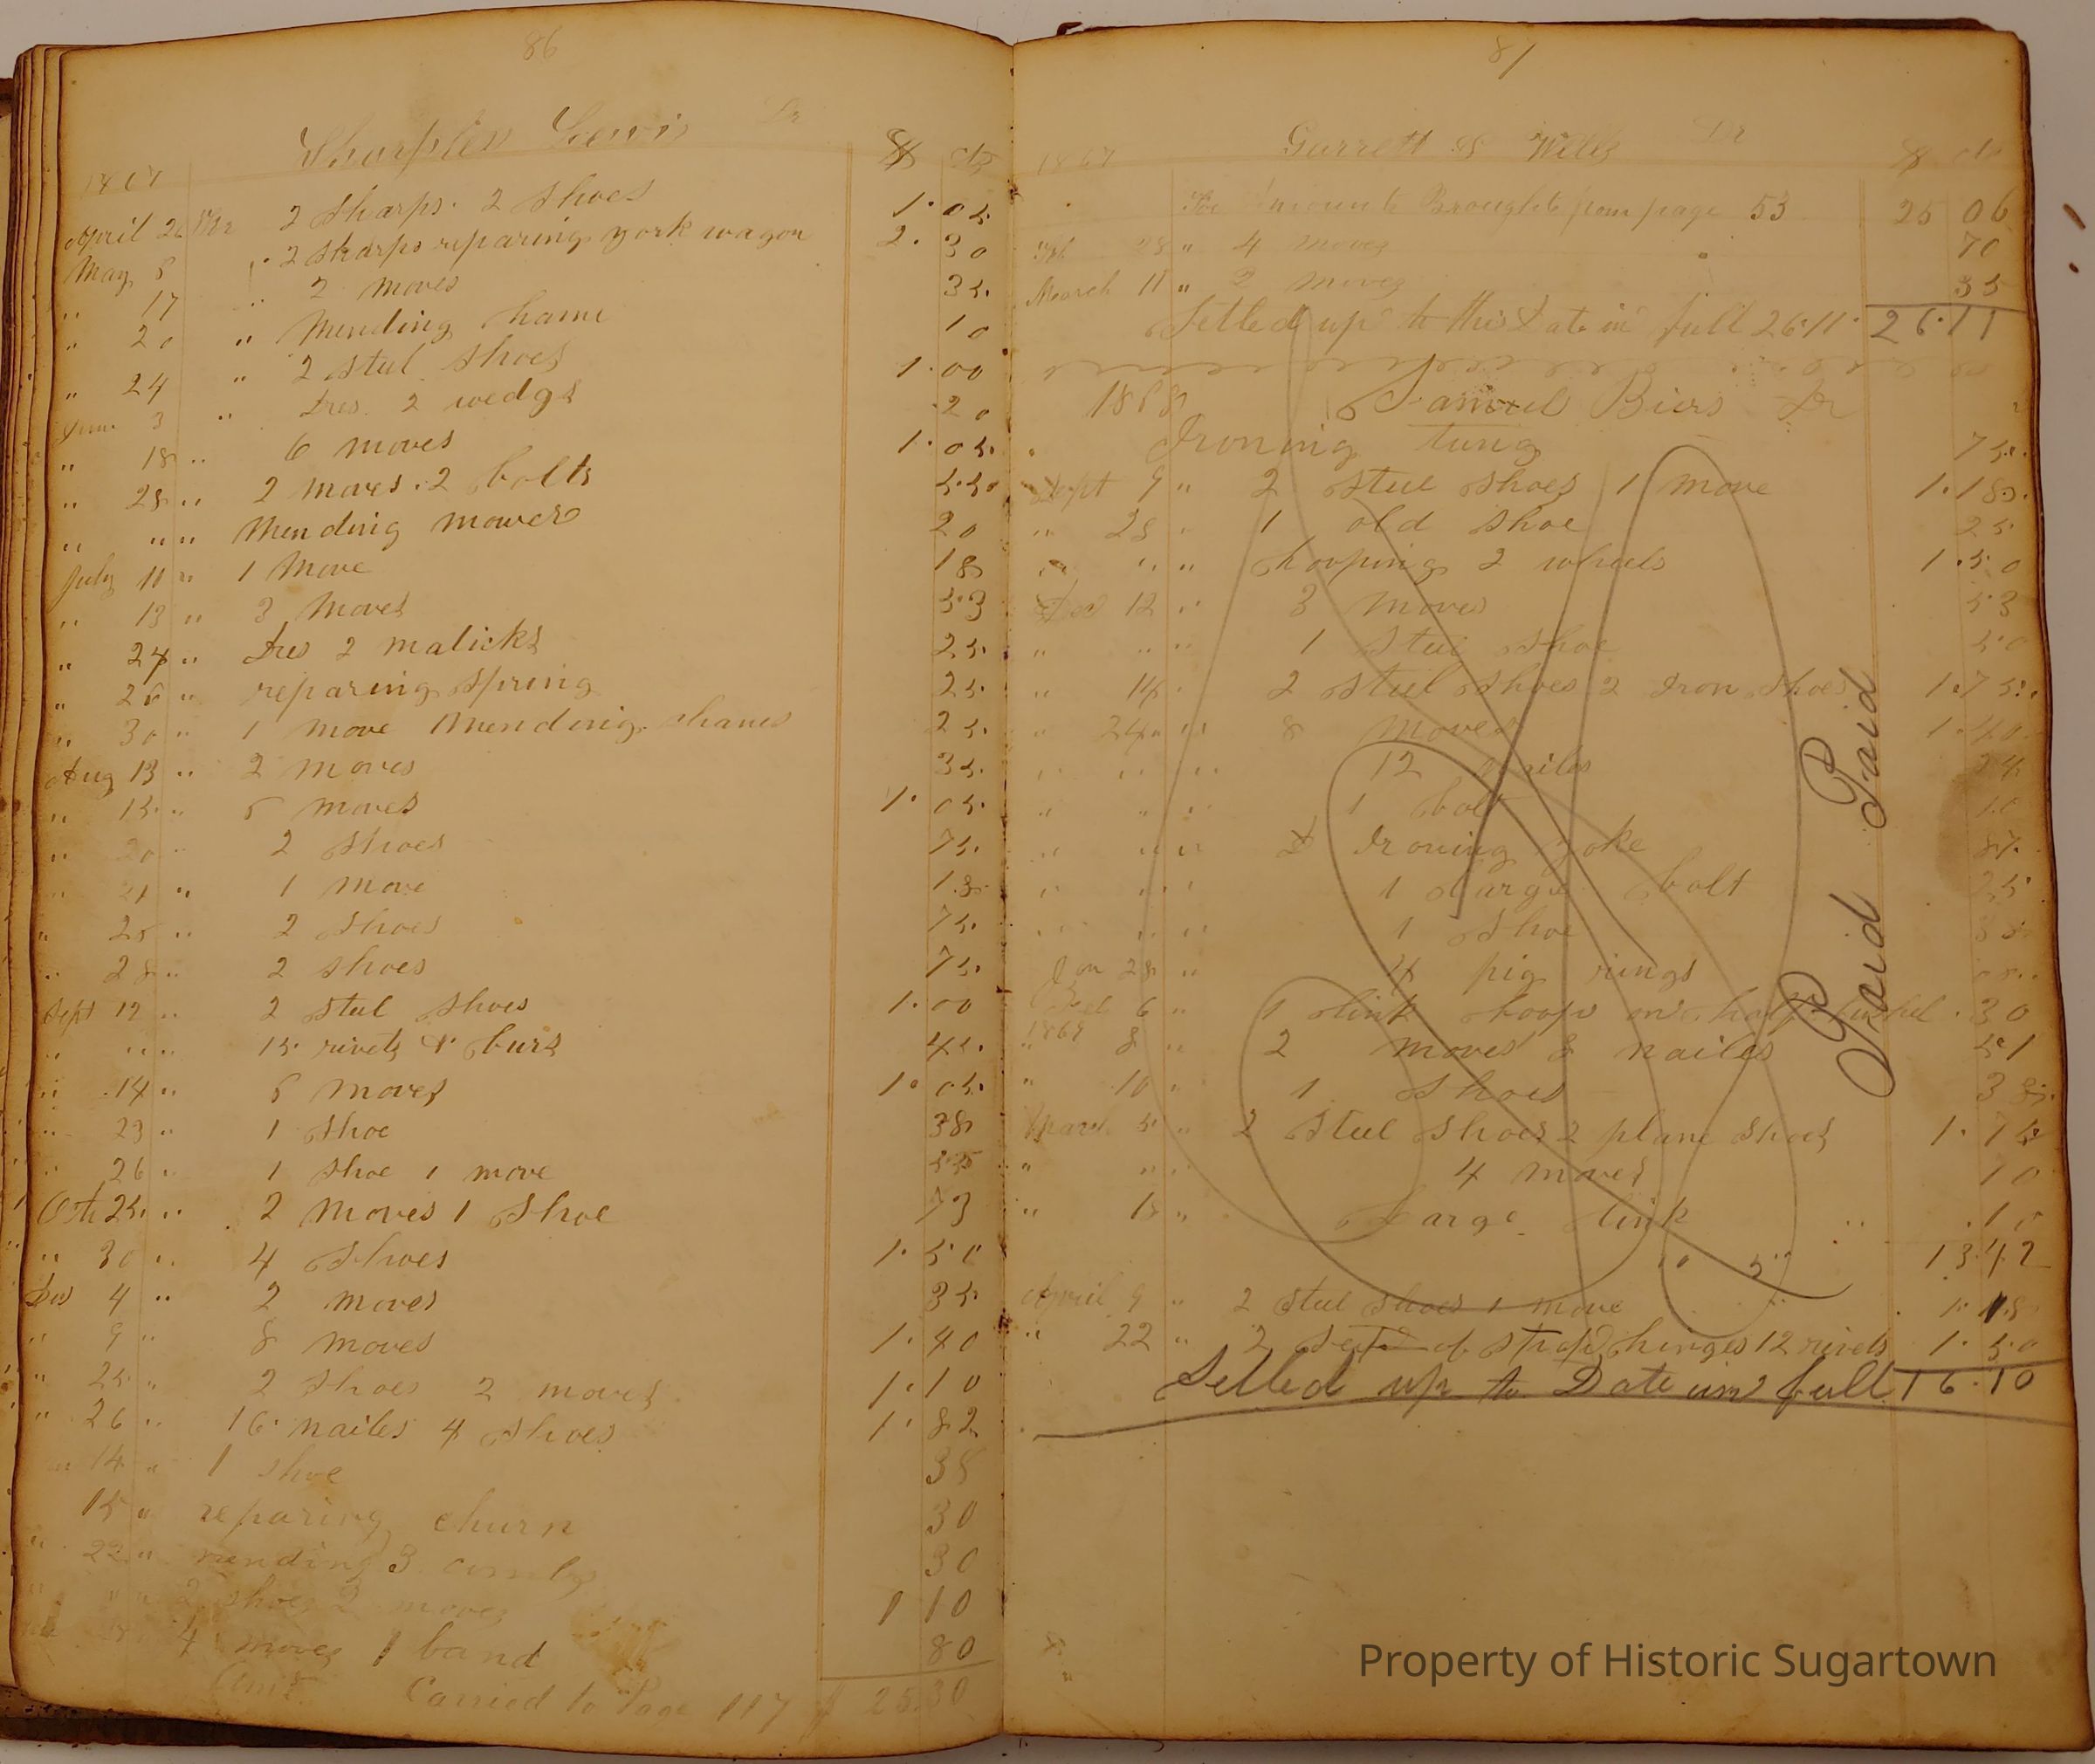 86
Sharples Lewis Dr
1867 $ cts
April 26 2 sharps. 2 Shoes 1.05
May 8 " 2 sharps reparing york wagon 2.30
" 17 " 2 moves 35
" 20 " Mending hame 10
" 24 " 2 steel shoes 1.00
June 3 " dres. 2 wedgs .20
" 18 " 6 moves 1.05
" 28 " 2 moves. 2 bolts 55
" " " Mending mower 20
July 11 " 1 Move 18
" 13 " 3 Moves 53
" 24 " dres 2 maticks 25
" 26 " reparing spring 25
" 30 " 1 move mending hames 25
Aug 13 " 2 moves 35
" 15 " 6 moves 1.05
" 20 " 2 Shoes 75
" 21 " 1 move 18
" 25 " 2 Shoes 75
" 28 " 2 shoes 75
Sept 12 " 2 steel shoes 1.00
" " " 15 rivets & burs 45
" 14 " 6 moves 1.05
" 23 " 1 Shoe 38
" 26 " 1 shoe 1 move 55
Oct 25 " 2 moves 1 Shoe 73
" 30 " 4 Shoes 1.50
Des 4 " 2 moves 35
" 9 " 8 moves 1.40
" 25 " 2 Shoes 2 moves 1.10
" 26 " 16 nailes 4 Shoes 1.82
" 14 " 1 shoe 38
15 " reparing churn 30
" 22 " mending 3 30
" " " 2 shoes 2 moves 1 10
4 moves 1 band 80
Amt Carried to Page 117 $ 25.30
81
1867 Garrett & Wells Dr $ cts
Too Amount Brought from page 53 25 06
Feb 28 " 4 moves 70
March 11 " 2 moves 35
Settled up to this Date in full 26.11. 26.11
1868 Samuel Biers Dr
Ironing tung 75
Sept 9 " 2 steel shoes 1 move 1.18
" 28 " 1 old shoe 25
" " " hooping 2 wheels 1.50
Des 12 " 3 moves 53
" " " 1 Steel Shoe 50
" 14 " 2 Steel Shoes 2 Iron Shoes 1.75
" 24 " 8 moves 1.40
" " " 12 nailes 24
" " " 1 bolt 10
" " " Ironing yoke 87
" " " 1 large bolt 25
" " " 1 Shoe 38
Jan 28 " 4 pig rings
Feb 6 " 1 link hoop on half bushel .30
" 1869 8 " 2 moves 8 nailes 51
" 10 " 1 Shoes 38
Marc 5 " 2 Steel Shoes 2 plane shoes 1.75
" " " 4 moves 10
" 15 " Large link .10
13.42
April 9 " 2 steel shoes 1 move 1.18
" 22 " 2 sets of strap hinges 12 rivets 1.50
Settled up to Date in full 16.10
Paid Paid
Property of Historic Sugartown